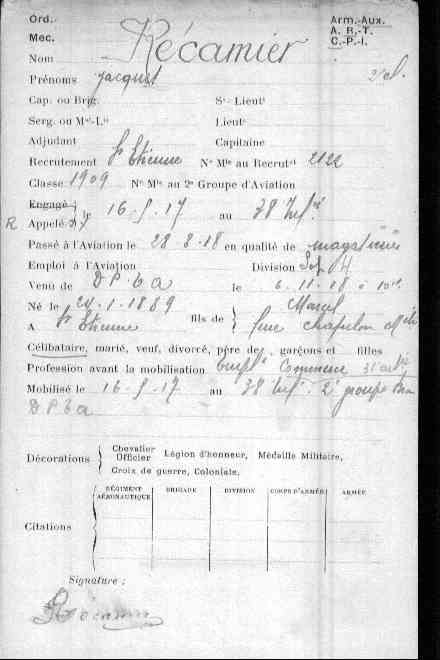 Ord.
Mec.
Arm.-Aux.
A. R.-T.
C.-P.-I.
Nom Récamier
Prénoms Jacques
Cap. ou Brig. S-Lieut
Serg. ou M-L Lieut
Adjudant Capitaine
Recrutement St Etienne N° M au Recrut 2122
Classe 1909 N° M au 2e Groupe d'Aviation
Engagé le 16.9.17 au 38 Inf.
R Appelé
Passé à l'Aviation le 28-3-18 en qualité de magasinier
Emploi à l'Aviation Division
Venu de DP6a le 6-11-18
Né le 24-1-1889 fils de Marcel
A St Etienne
Célibataire, marié, veuf, divorcé, père de garçons et filles
Profession avant la mobilisation Commerce
Mobilisé le 16-9-17 au 38 Inf. 2e groupe
DP6a
Décorations
Chevalier
Officier
Légion d'honneur, Médaille Militaire,
Croix de guerre, Coloniale.
RÉGIMENT AÉRONAUTIQUE BRIGADE DIVISION CORPS D'ARMÉE ARMÉE
Citations
Signature :
Récamier